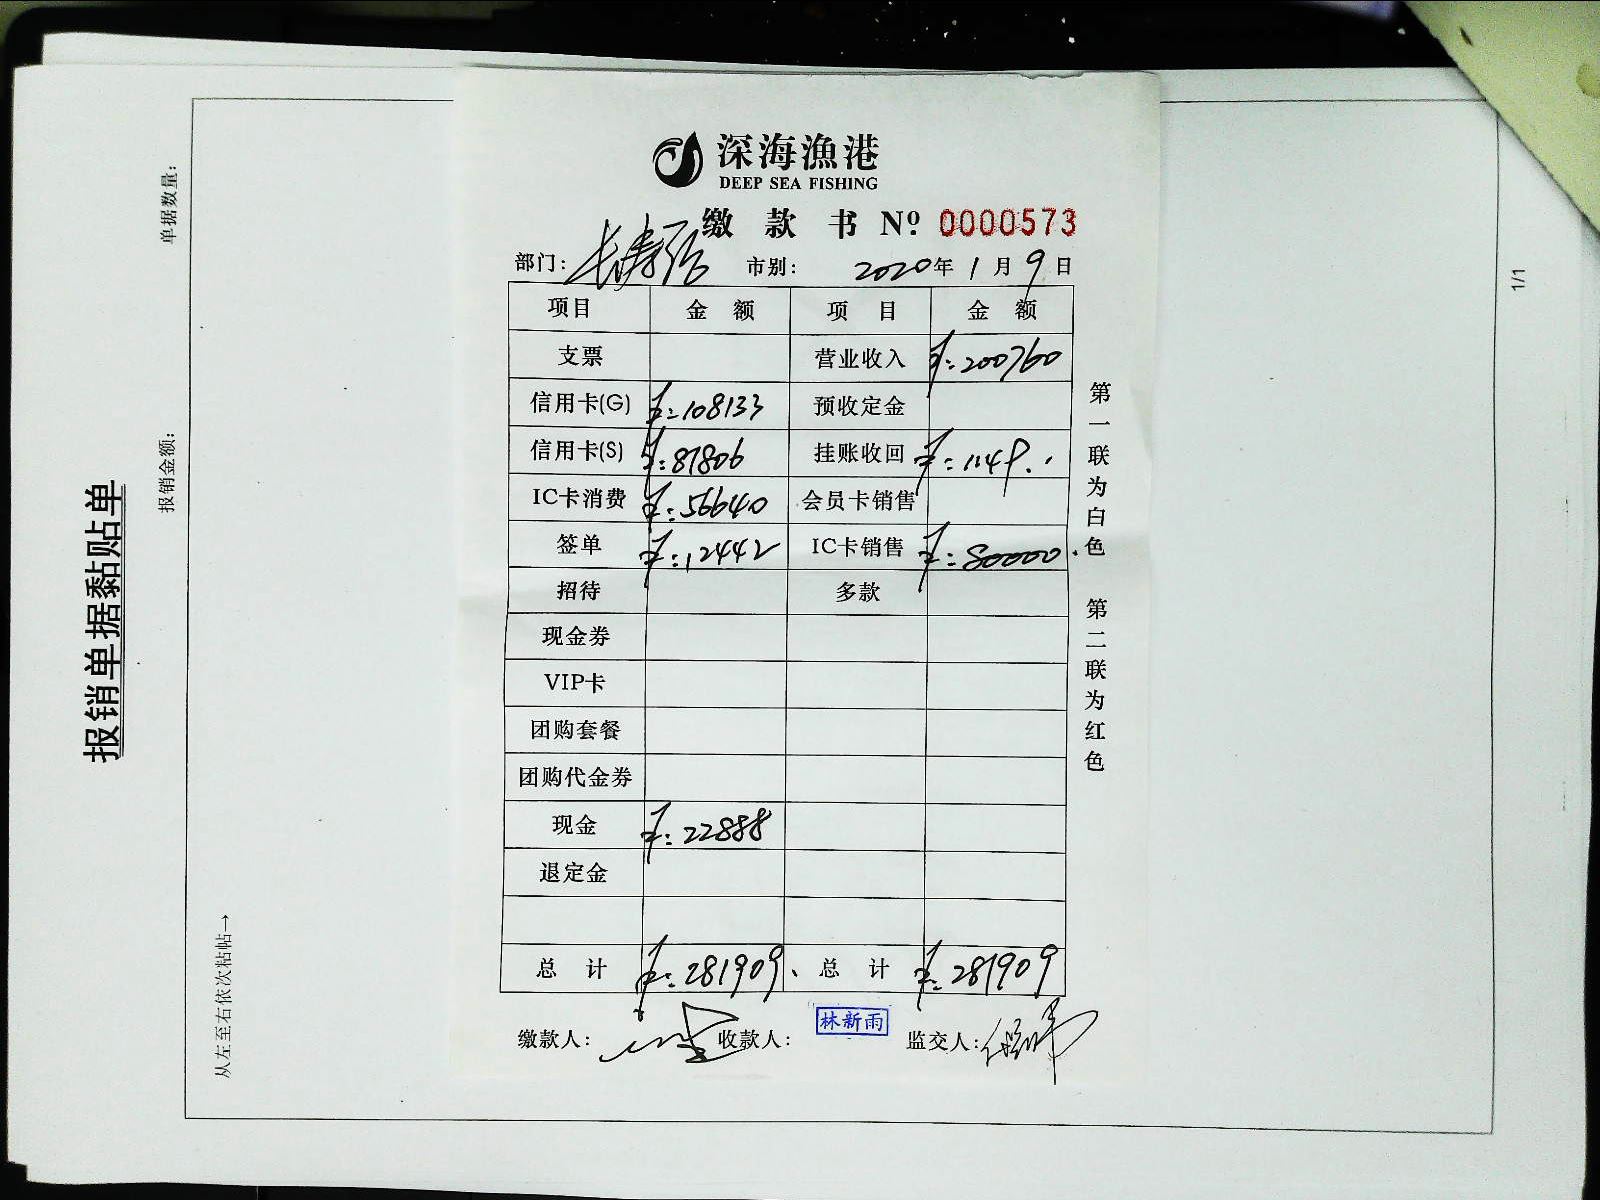 深海漁港
DEEP SEA FISHING
缴款书 Nº: 0000573
部门: 长寿路 市别: 2020年1月9日
项目 金额 项目 金额
支票 营业收入 ¥:200760
信用卡(G) ¥:108133 预收定金
信用卡(S) ¥:81806 挂账收回 ¥:1149.
IC卡消费 ¥:56640 会员卡销售
签单 ¥:12442 IC卡销售 ¥:80000.
招待 多款
现金券
VIP卡
团购套餐
团购代金券
现金 ¥:22888
退定金
总计 ¥:281909、 总计 ¥:281909
缴款人: 收款人: 林新雨 监交人:
第一联为白色 第二联为红色
报销单据黏贴单
报销金额: 单据数量:
从左至右依次粘帖→
1/1